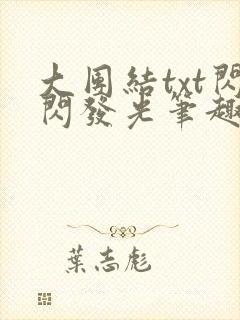 大團結txt閃
閃發光筆趣
葉志彪